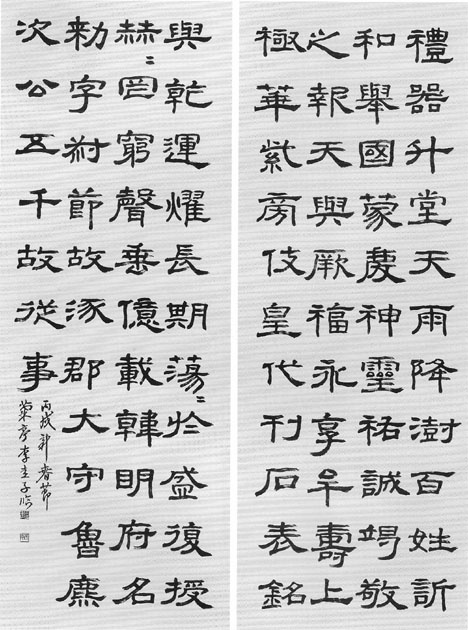 禮器升堂天雨降澍百姓訢
和舉國蒙慶神靈祐誠竭敬
之報天與厥福永享牟壽上
極華紫旁伎皇代刊石表銘
與乾運燿長期蕩〻於盛復授
赫〻罔窮聲垂億載韓明府名
勑字叔節故涿郡大守魯麃
次公五千故從事
丙戌新春節
亭李子臨